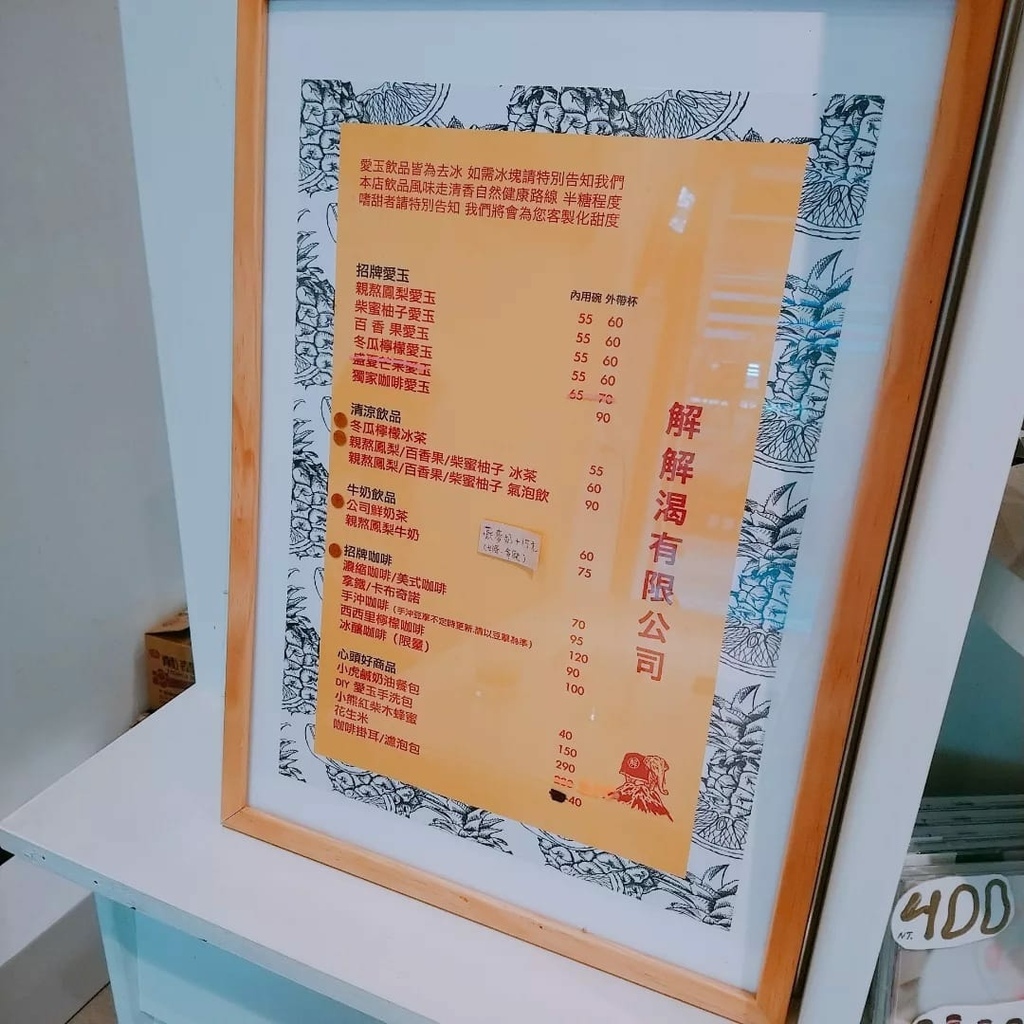 愛玉飲品皆為去冰 如需冰塊請特別告知我們
本店飲品風味走清香自然健康路線 半糖程度
嗜甜者請特別告知 我們將會為您客製化甜度
招牌愛玉 內用碗 外帶杯
親熬鳳梨愛玉 55 60
柴蜜柚子愛玉 55 60
百香果愛玉 55 60
冬瓜檸檬愛玉 55 60
盛夏芒果愛玉 65 70
獨家咖啡愛玉 90
清涼飲品
冬瓜檸檬冰茶 55
親熬鳳梨/百香果/柴蜜柚子 冰茶 60
親熬鳳梨/百香果/柴蜜柚子 氣泡飲 90
牛奶飲品
公司鮮奶茶 60
親熬鳳梨牛奶 75
招牌咖啡
濃縮咖啡/美式咖啡 70
拿鐵/卡布奇諾 95
手沖咖啡 (手沖豆單不定時更新,請以豆單為準) 120
西西里檸檬咖啡 90
冰釀咖啡（限量） 100
心頭好商品
小虎鹹奶油餐包 40
DIY 愛玉手洗包 150
小熊紅柴木蜂蜜 290
花生米
咖啡掛耳/濾泡包 40
燕麥奶+15元
解解渴有限公司
NT. 400